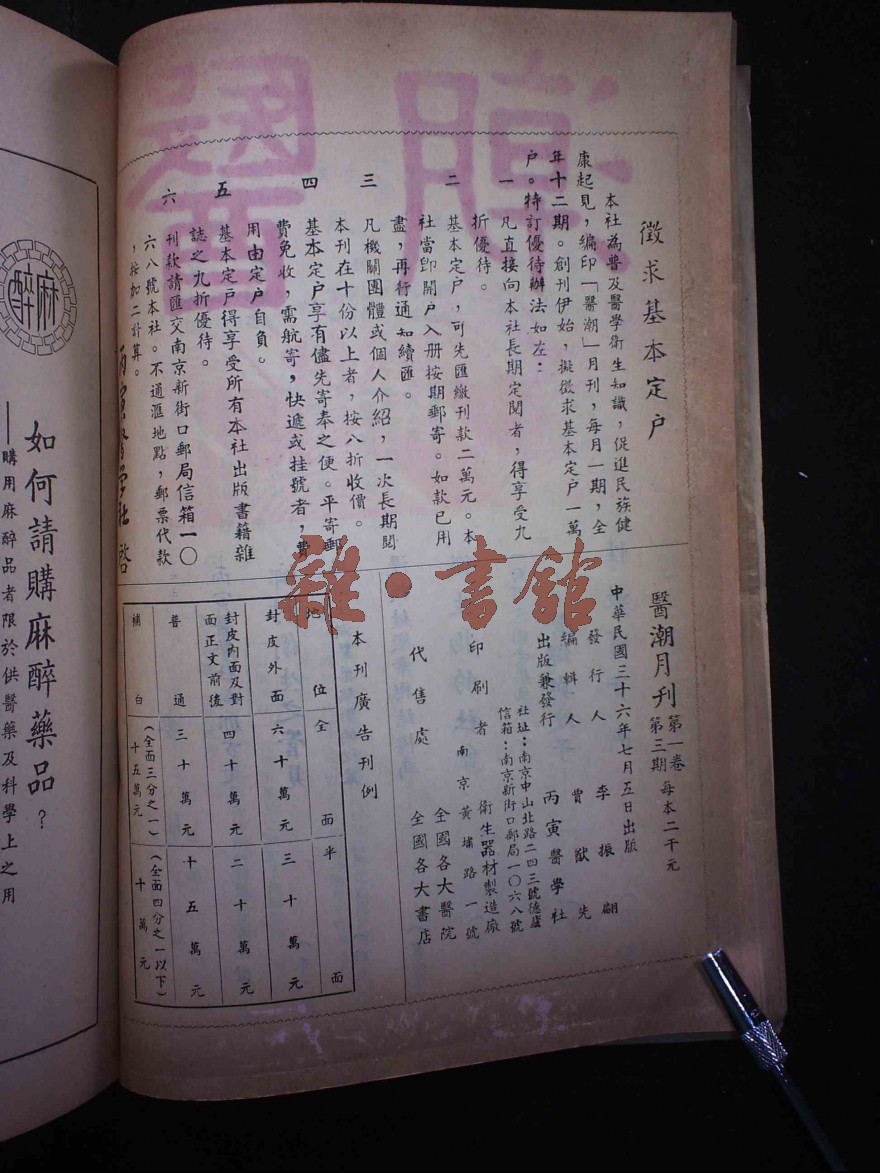 徵求基本定户
本社為普及醫學衛生知識，促進民族健
康起見，編印「醫潮」月刊，每月一期，全
年十二期。創刊伊始，擬徵求基本定户一萬
户。特訂優待辦法如左：
一　凡直接向本社長期定閱者，得享受九
折優待。
二　基本定户，可先匯繳刊款二萬元。本
社當卽開户入册按期郵寄。如款已用
盡，再行通知續匯。
三　凡機關團體或個人介紹，一次長期閱
本刊在十份以上者，按八折收價。
四　基本定户享有儘先寄奉之便。平寄郵
費免收，需航寄，快遞或挂號者，費
用由定户自負。
五　基本定户得享受所有本社出版書籍雜
誌之九折優待。
六　刊款請匯交南京新街口郵局信箱一〇
六八號本社。不通滙地點，郵票代款
，按加二計算。
丙寅醫學社　啓
醫潮月刊　第一卷第三期　每本二千元
中華民國三十六年七月五日出版
發行人　李振翩
編輯人　賈猷先
出版兼發行　丙寅醫學社
社址：南京中山北路二四三號德廬
信箱：南京新街口郵局一〇六八號
印刷者　衛生器材製造廠
南京黃埔路一號
代售處　全國各大醫院
全國各大書店
本刊廣告刊例
地位　全面　半面
封皮外面　六十萬元　三十萬元
封皮內面及對面正文前後　四十萬元　二十萬元
普通　三十萬元　十五萬元
補白　（全面三分之一）十五萬元　（全面四分之一以下）十萬元
雜·書館
醫潮
麻醉
如何請購麻醉藥品？
——購用麻醉品者限於供醫藥及科學上之用